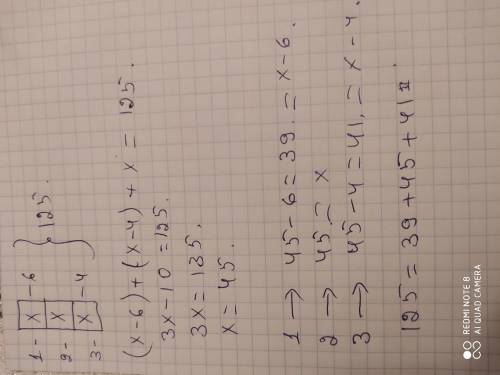 1- x -6
2- x } 125.
3- x -4
(x-6)+(x-4)+x = 125.
3x-10=125.
3x=135.
x=45.
1 → 45-6=39.=x-6.
2 → 45=x
3 → 45-4=41.=x-4.
125=39+45+41
REDMI NOTE 8
AI QUAD CAMERA